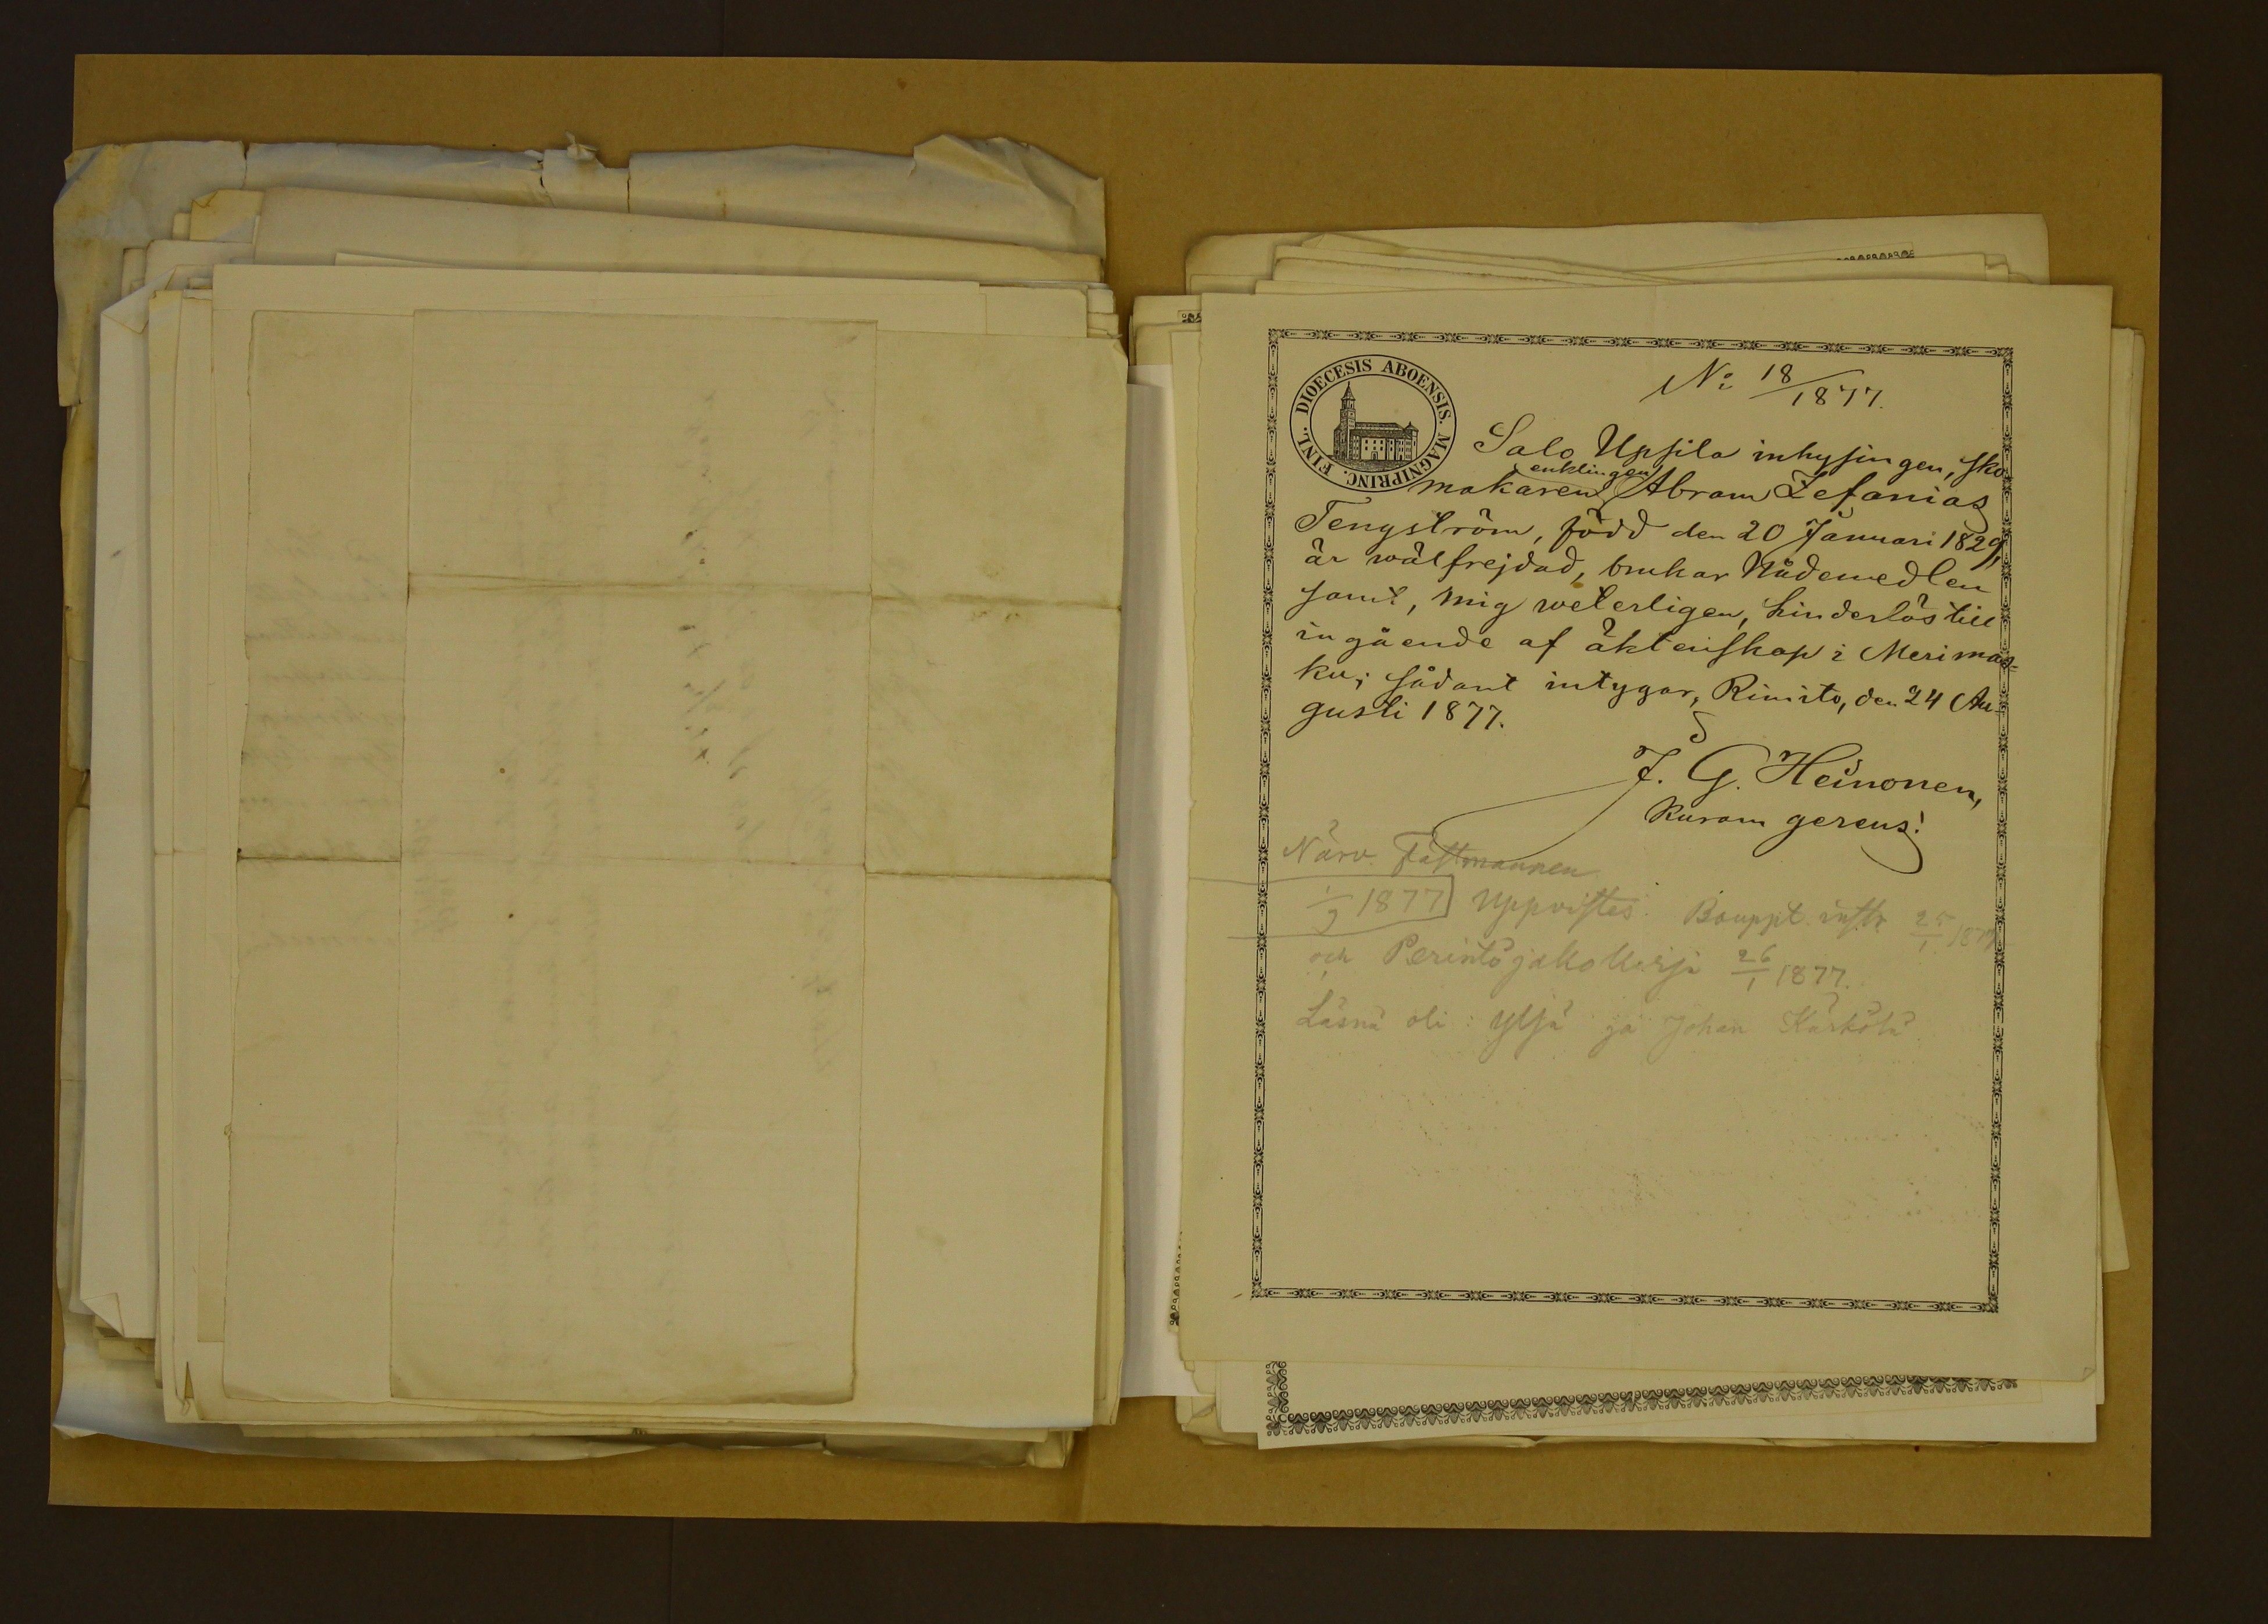 DIOECESIS ABOENSIS. MAGNIPRINC. FINL.
N: 18/1877.
Salo Upsila inhysingen, sko
enklingen
makaren Abram Zefanias
Tengström, född den 20 Januari 1829,
är wälfrejdad, brukar Nådemedlen
samt, mig weterligen, hinderlös till
ingående af äktenskap i Merimas-
ku; sådant intygar, Rimito, den 24 Au-
gusti 1877.
J. G. Heinonen,
Kuram gerens.
Närv. Fästmannen
1/9 1877 Uppvistes Bouppt. instr 25/1 1877
och Perintöjako kirja 26/1 1877.
Läsnä oli: ja Johan Kärkölä